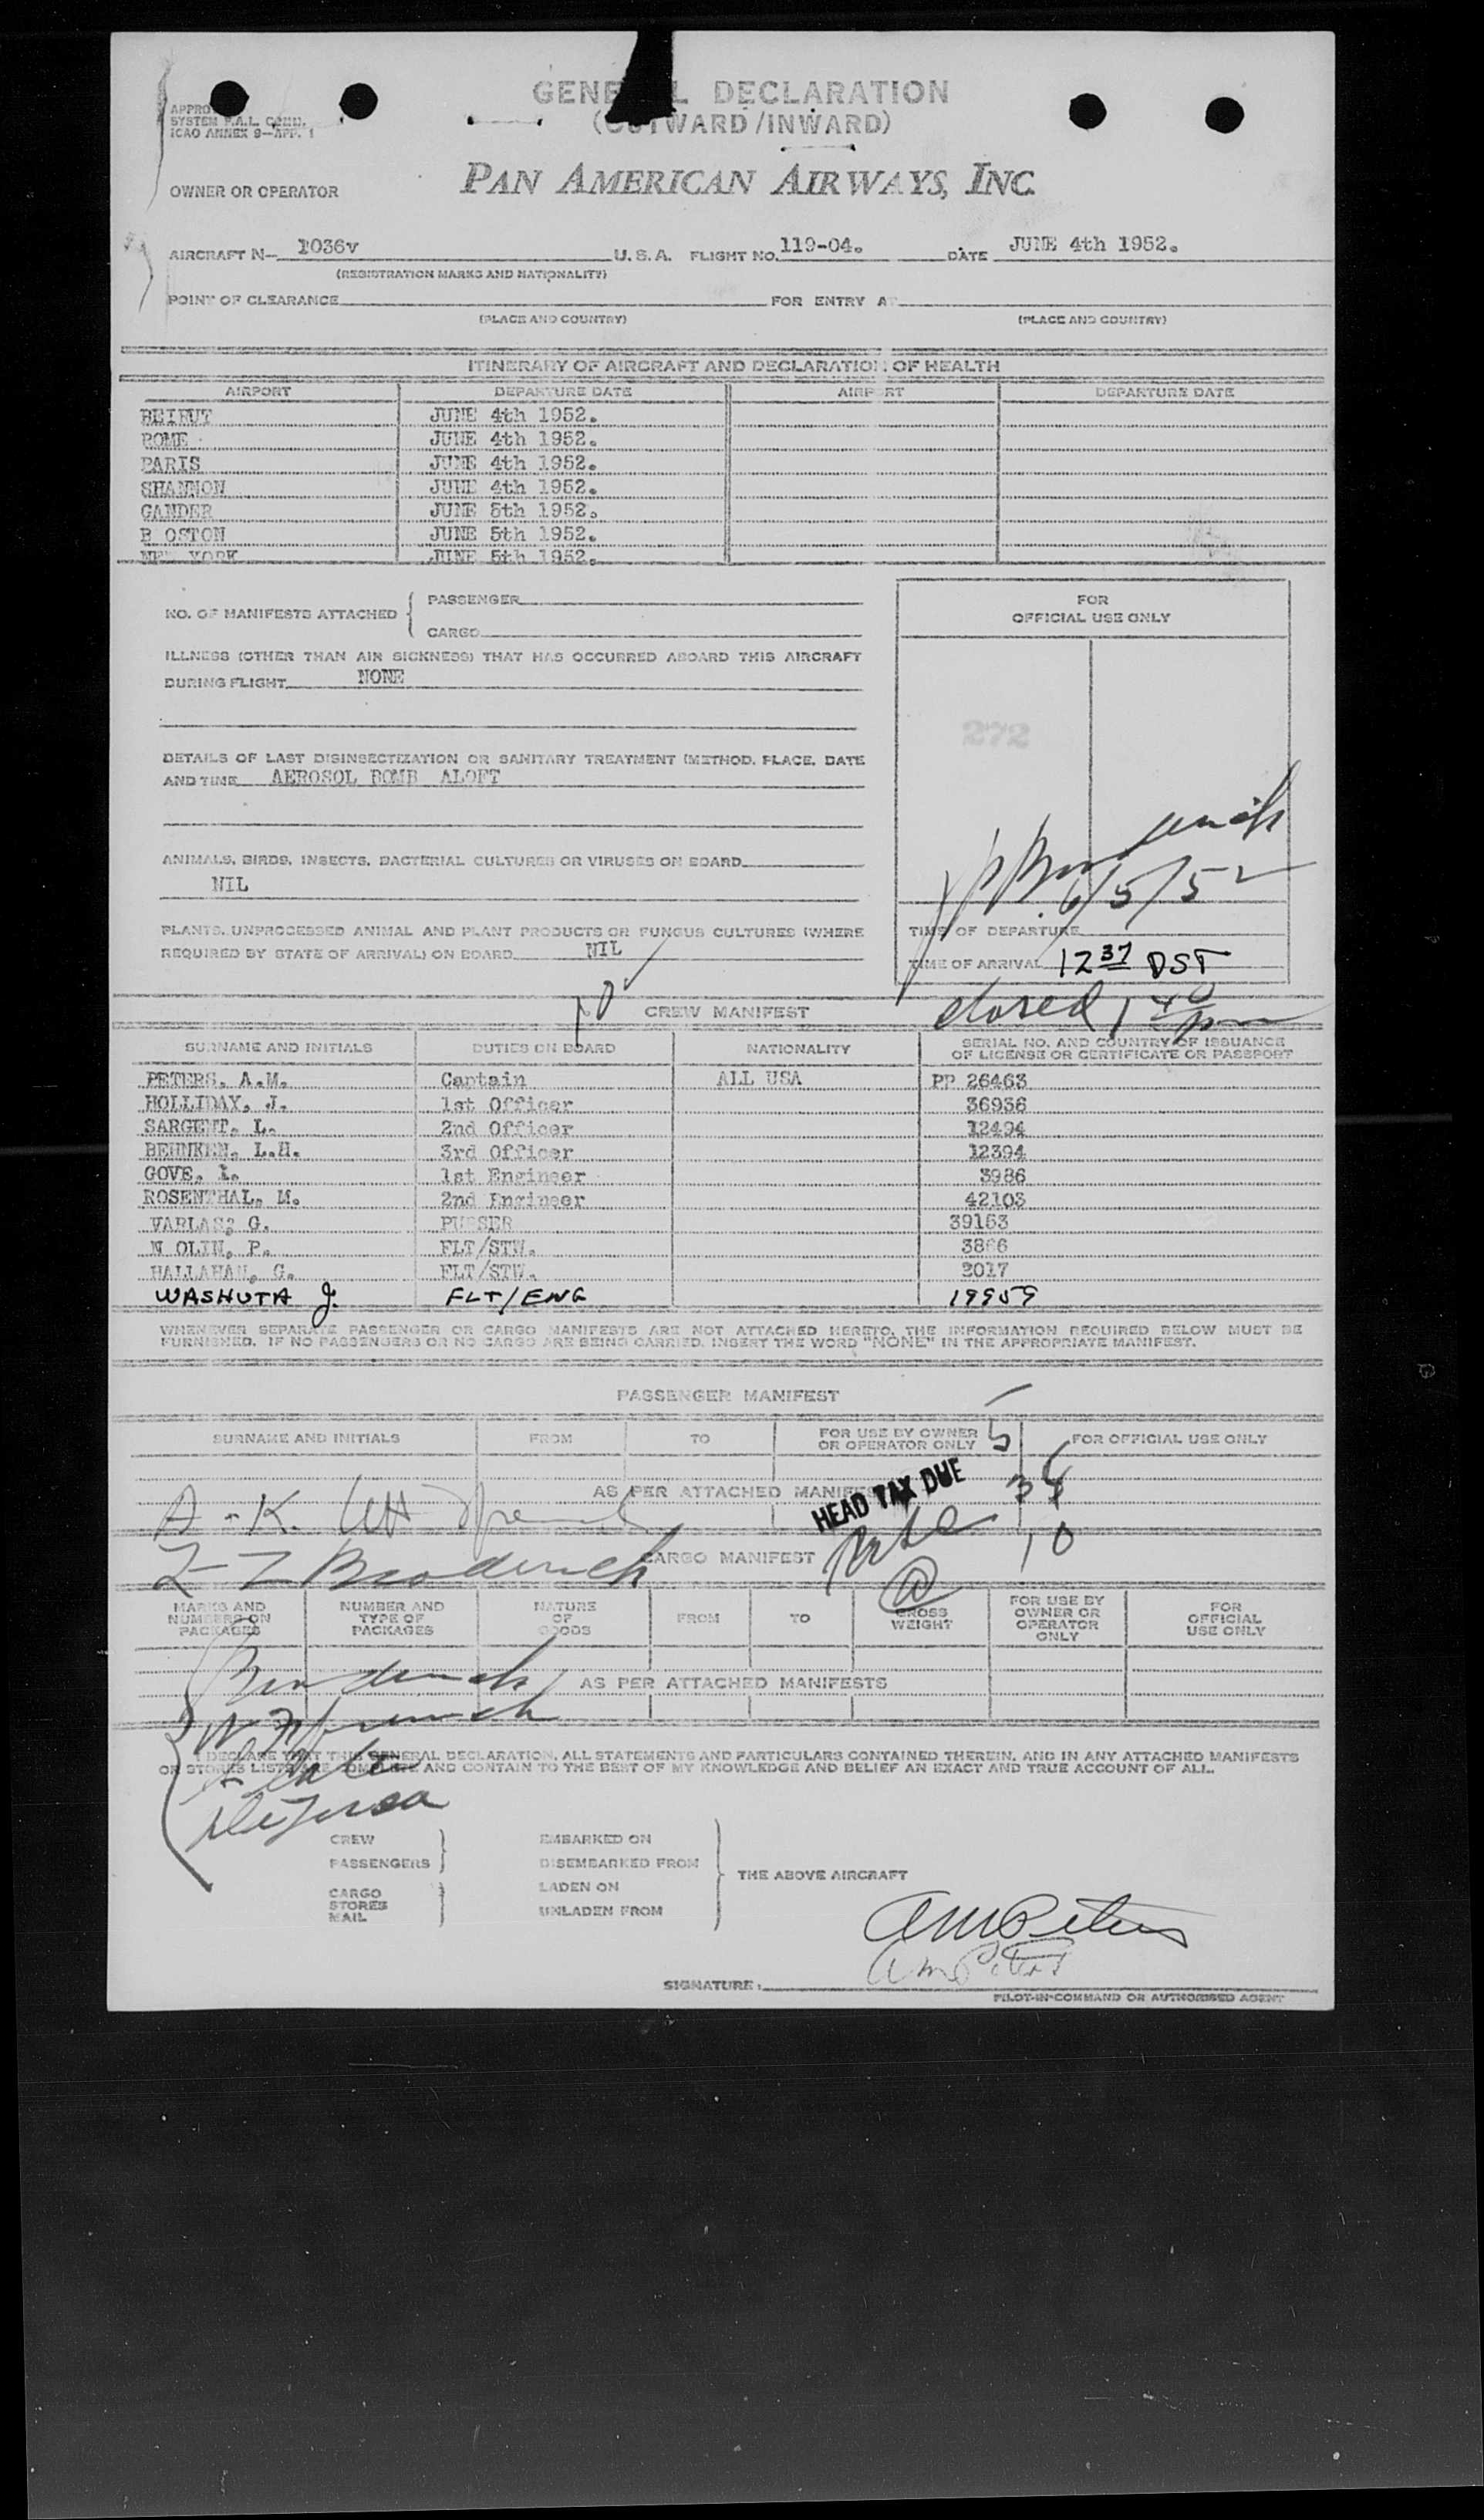 GENE L DECLARATION
(OUTWARD/INWARD)
APPRO
SYSTEM F.A.L. COMM.
ICAO ANNEX 9—APP. 1
OWNER OR OPERATOR PAN AMERICAN AIRWAYS, INC.
AIRCRAFT N— 1036v U. S. A. FLIGHT NO. 119-04. DATE JUNE 4th 1952.
(REGISTRATION MARKS AND NATIONALITY)
POINT OF CLEARANCE FOR ENTRY AT
(PLACE AND COUNTRY) (PLACE AND COUNTRY)
ITINERARY OF AIRCRAFT AND DECLARATION OF HEALTH
AIRPORT DEPARTURE DATE AIRPORT DEPARTURE DATE
BEIRUT JUNE 4th 1952.
ROME JUNE 4th 1952.
PARIS JUNE 4th 1952.
SHANNON JUNE 4th 1952.
GANDER JUNE 5th 1952.
B OSTON JUNE 5th 1952.
NEW YORK JUNE 5th 1952.
NO. OF MANIFESTS ATTACHED PASSENGER
CARGO
FOR
OFFICIAL USE ONLY
ILLNESS (OTHER THAN AIR SICKNESS) THAT HAS OCCURRED ABOARD THIS AIRCRAFT
DURING FLIGHT NONE
272
DETAILS OF LAST DISINSECTIZATION OR SANITARY TREATMENT (METHOD, PLACE, DATE
AND TIME AEROSOL BOMB ALOFT
ANIMALS, BIRDS, INSECTS, BACTERIAL CULTURES OR VIRUSES ON BOARD
NIL
6/5/52
PLANTS, UNPROCESSED ANIMAL AND PLANT PRODUCTS OR FUNGUS CULTURES (WHERE
REQUIRED BY STATE OF ARRIVAL) ON BOARD NIL
TIME OF DEPARTURE
TIME OF ARRIVAL 12 37 DST
closed 1 40 pm
10
CREW MANIFEST
SURNAME AND INITIALS DUTIES ON BOARD NATIONALITY SERIAL NO. AND COUNTRY OF ISSUANCE
OF LICENSE OR CERTIFICATE OR PASSPORT
PETERS, A.M. Captain ALL USA PP 26463
HOLLIDAY, J. 1st Officer 36936
SARGENT, L. 2nd Officer 12494
BEHNKEN, L.H. 3rd Officer 12394
GOVE, L. 1st Engineer 3986
ROSENTHAL, M. 2nd Engineer 42103
VARLAS, G. PURSER 39153
N OLIN, P. FLT/STW. 3866
HALLAHAN, G. FLT/STW. 2017
WASHUTA J. FLT/ENG 19959
WHENEVER SEPARATE PASSENGER OR CARGO MANIFESTS ARE NOT ATTACHED HERETO, THE INFORMATION REQUIRED BELOW MUST BE
FURNISHED. IF NO PASSENGERS OR NO CARGO ARE BEING CARRIED, INSERT THE WORD "NONE" IN THE APPROPRIATE MANIFEST.
PASSENGER MANIFEST
SURNAME AND INITIALS FROM TO FOR USE BY OWNER
OR OPERATOR ONLY 5 FOR OFFICIAL USE ONLY
AS PER ATTACHED MANIFESTS
HEAD TAX DUE
38
10
CARGO MANIFEST
MARKS AND
NUMBERS ON
PACKAGES
NUMBER AND
TYPE OF
PACKAGES
NATURE
OF
GOODS
FROM
TO
GROSS
WEIGHT
FOR USE BY
OWNER OR
OPERATOR
ONLY
FOR
OFFICIAL
USE ONLY
AS PER ATTACHED MANIFESTS
I DECLARE THAT THIS GENERAL DECLARATION, ALL STATEMENTS AND PARTICULARS CONTAINED THEREIN, AND IN ANY ATTACHED MANIFESTS
OR STORES LISTS ARE COMPLETE AND CONTAIN TO THE BEST OF MY KNOWLEDGE AND BELIEF AN EXACT AND TRUE ACCOUNT OF ALL.
CREW
PASSENGERS
CARGO
STORES
MAIL
EMBARKED ON
DISEMBARKED FROM
LADEN ON
UNLADEN FROM
THE ABOVE AIRCRAFT
AMPeters
A M Peters
SIGNATURE:
PILOT-IN-COMMAND OR AUTHORISED AGENT